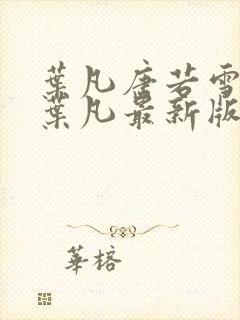 葉凡唐若雪
葉凡最新版
華榕